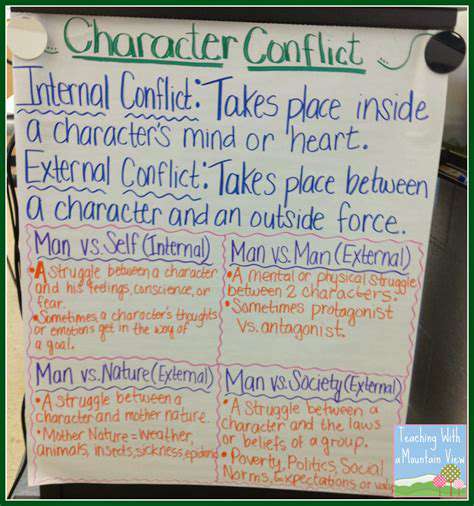 Character Conflict
Internal Conflict: Takes place inside
a character's mind or heart.
External Conflict: Takes place between
a character and an outside force.
Man vs. Self (Internal)
•A struggle between a character
and his feelings, conscience, or
fear.
•Sometimes, a character's thoughts
or emotions get in the way of
a goal.
Man vs. Man (External)
•A mental or physical struggle
between 2 characters.
•Sometimes protagonist
vs. antagonist.
Man vs. Nature (External)
•A struggle between a
character and mother nature.
•Mother Nature = Weather,
animals, insects, sickness,
Man vs. Society (External)
•A struggle between a
character and the laws
or beliefs of a group.
•Poverty, Politics, Social
Norms, Expectations or
Teaching With
a Mountain View